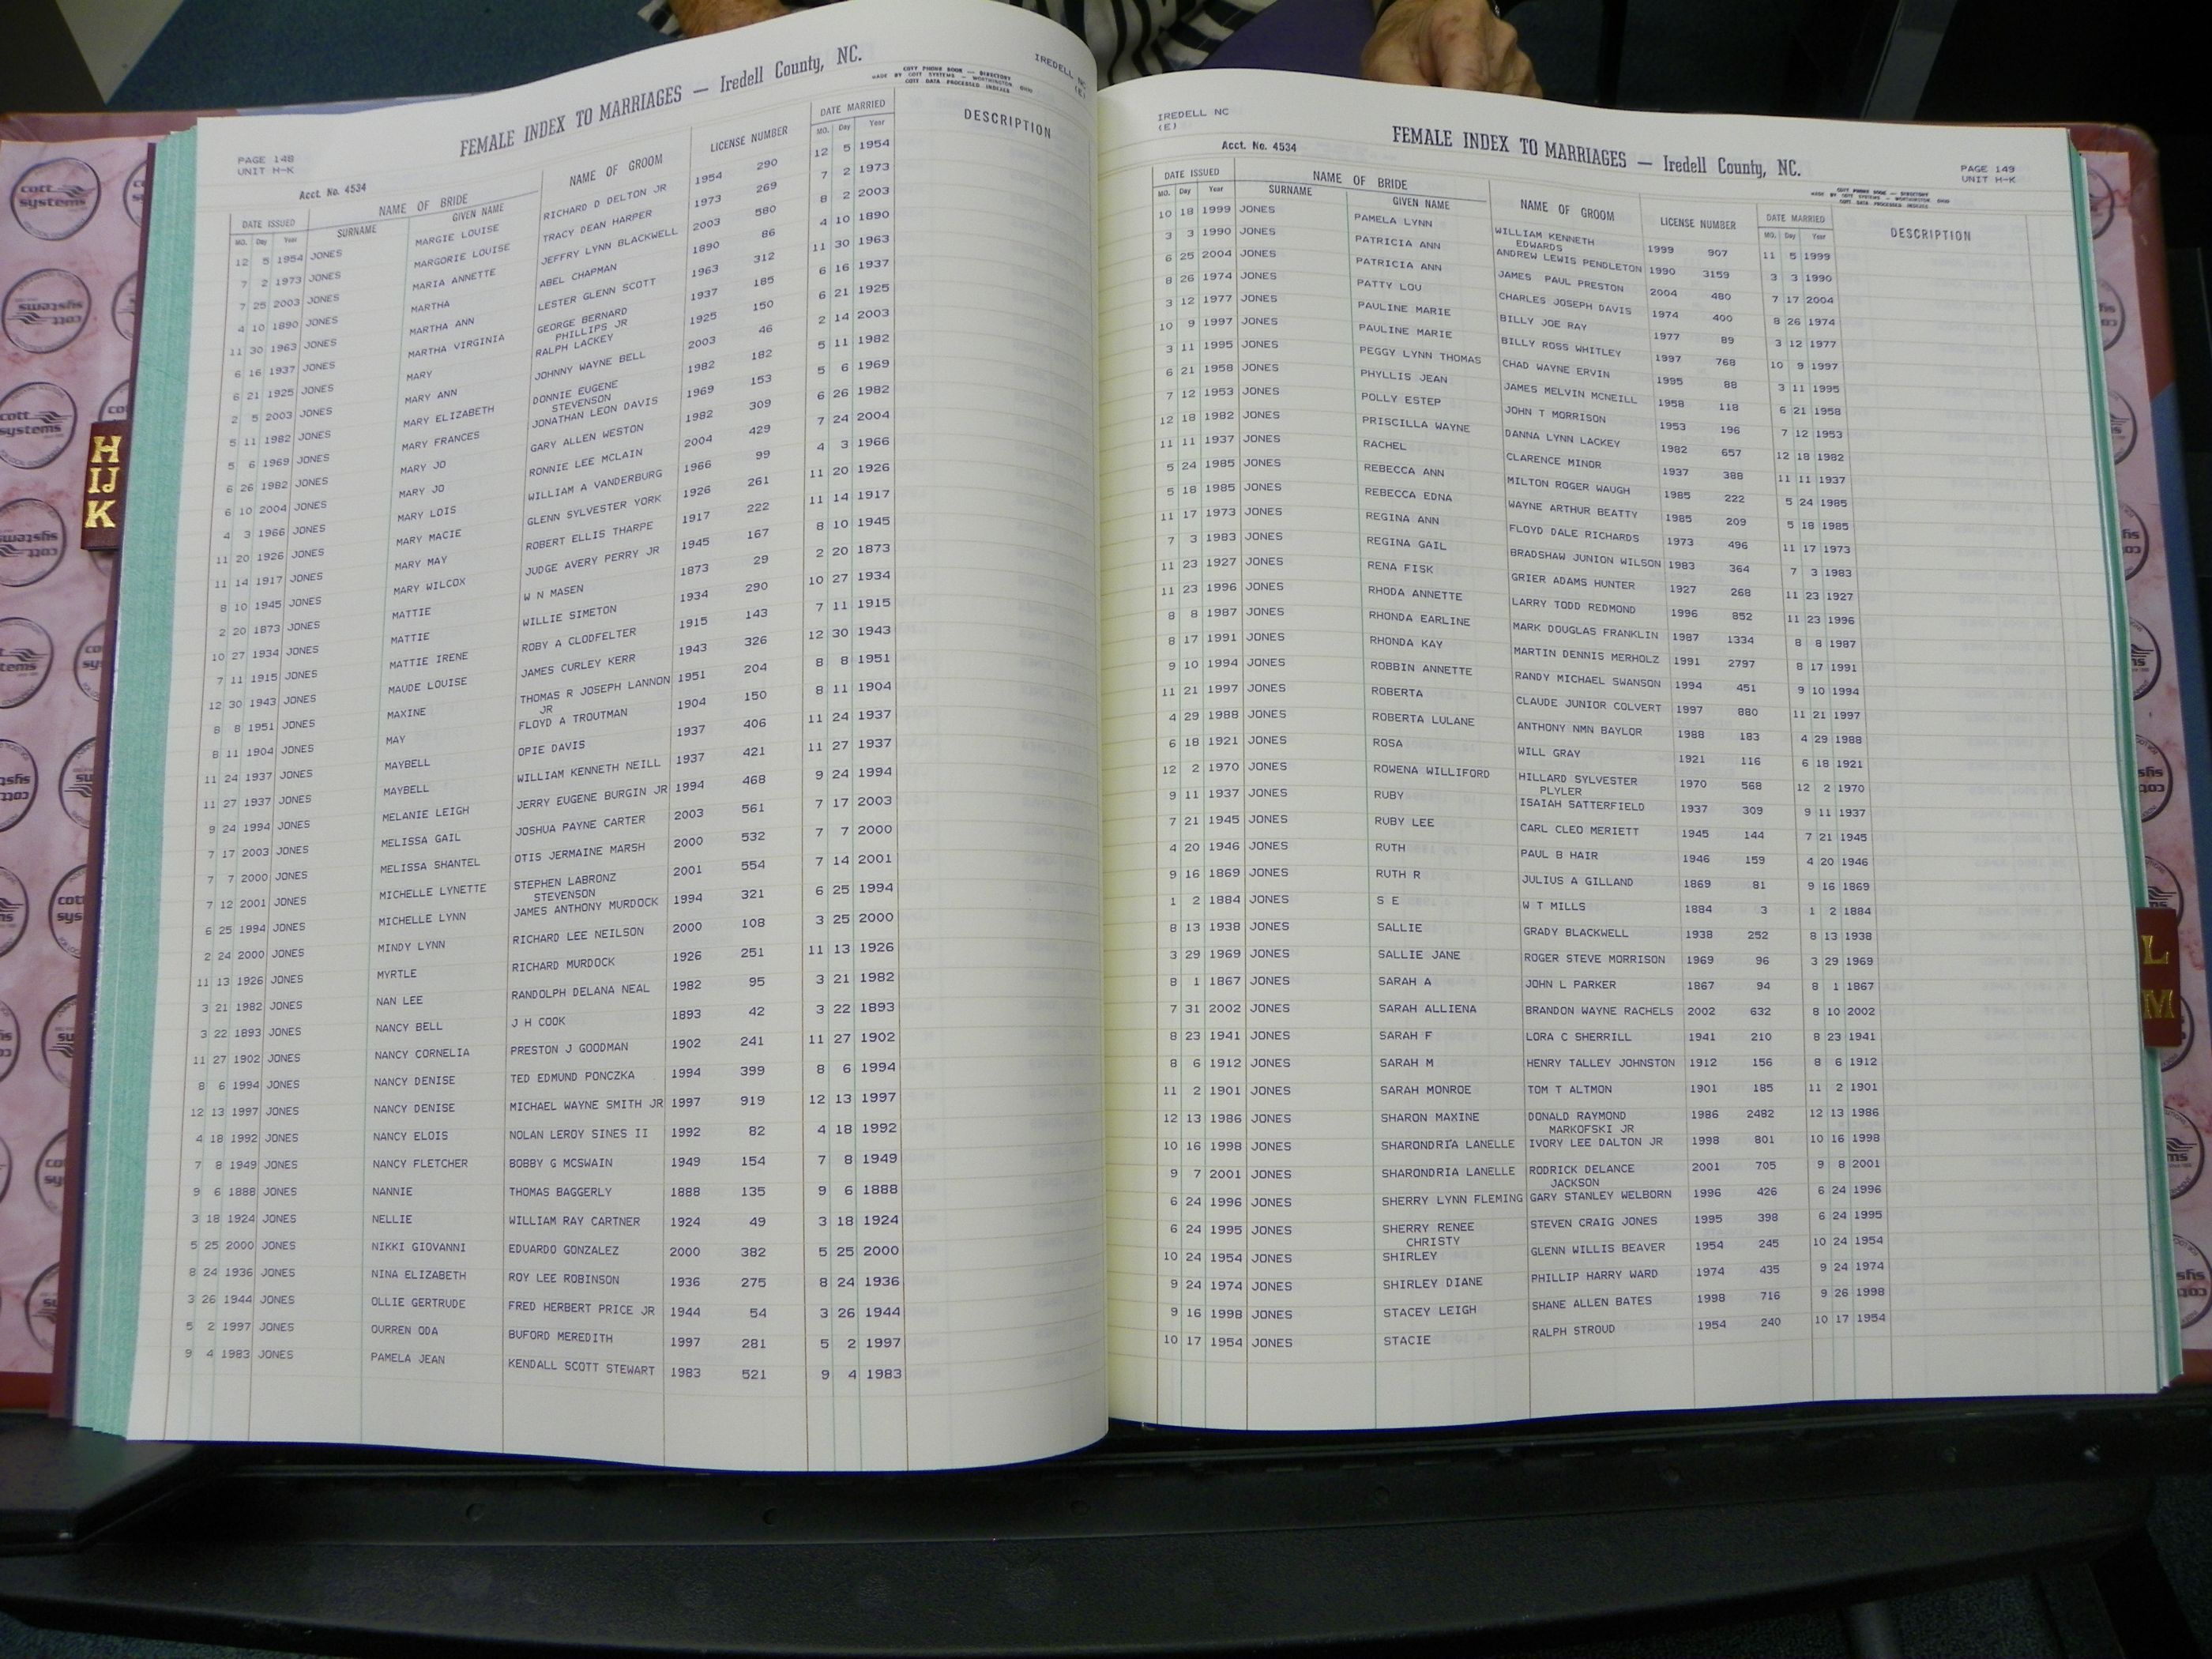 FEMALE INDEX TO MARRIAGES — Iredell County, NC.
COTT PHONE BOOK — DIRECTORY
MADE BY COTT SYSTEMS — WORTHINGTON, OHIO
COTT DATA PROCESSED INDEXES
IREDELL NC
(E)
PAGE 148
UNIT H-K
Acct. No. 4534
DATE ISSUED NAME OF BRIDE NAME OF GROOM LICENSE NUMBER DATE MARRIED DESCRIPTION
MO. Day Year SURNAME GIVEN NAME MO. Day Year
12 5 1954 JONES MARGIE LOUISE RICHARD D DELTON JR 1954 290 12 5 1954
7 2 1973 JONES MARGORIE LOUISE TRACY DEAN HARPER 1973 269 7 2 1973
7 25 2003 JONES MARIA ANNETTE JEFFRY LYNN BLACKWELL 2003 580 8 2 2003
4 10 1890 JONES MARTHA ABEL CHAPMAN 1890 86 4 10 1890
11 30 1963 JONES MARTHA ANN LESTER GLENN SCOTT 1963 312 11 30 1963
6 16 1937 JONES MARTHA VIRGINIA GEORGE BERNARD 1937 185 6 16 1937
PHILLIPS JR
6 21 1925 JONES MARY RALPH LACKEY 1925 150 6 21 1925
2 5 2003 JONES MARY ANN JOHNNY WAYNE BELL 2003 46 2 14 2003
5 11 1982 JONES MARY ELIZABETH DONNIE EUGENE 1982 182 5 11 1982
STEVENSON
5 6 1969 JONES MARY FRANCES JONATHAN LEON DAVIS 1969 153 5 6 1969
6 26 1982 JONES MARY JO GARY ALLEN WESTON 1982 309 6 26 1982
6 10 2004 JONES MARY JO RONNIE LEE MCLAIN 2004 429 7 24 2004
4 3 1966 JONES MARY LOIS WILLIAM A VANDERBURG 1966 99 4 3 1966
11 20 1926 JONES MARY MACIE GLENN SYLVESTER YORK 1926 261 11 20 1926
11 14 1917 JONES MARY MAY ROBERT ELLIS THARPE 1917 222 11 14 1917
8 10 1945 JONES MARY WILCOX JUDGE AVERY PERRY JR 1945 167 8 10 1945
2 20 1873 JONES MATTIE W N MASEN 1873 29 2 20 1873
10 27 1934 JONES MATTIE WILLIE SIMETON 1934 290 10 27 1934
7 11 1915 JONES MATTIE IRENE ROBY A CLODFELTER 1915 143 7 11 1915
12 30 1943 JONES MAUDE LOUISE JAMES CURLEY KERR 1943 326 12 30 1943
8 8 1951 JONES MAXINE THOMAS R JOSEPH LANNON 1951 204 8 8 1951
JR
8 11 1904 JONES MAY FLOYD A TROUTMAN 1904 150 8 11 1904
11 24 1937 JONES MAYBELL OPIE DAVIS 1937 406 11 24 1937
11 27 1937 JONES MAYBELL WILLIAM KENNETH NEILL 1937 421 11 27 1937
9 24 1994 JONES MELANIE LEIGH JERRY EUGENE BURGIN JR 1994 468 9 24 1994
7 17 2003 JONES MELISSA GAIL JOSHUA PAYNE CARTER 2003 561 7 17 2003
7 7 2000 JONES MELISSA SHANTEL OTIS JERMAINE MARSH 2000 532 7 7 2000
7 12 2001 JONES MICHELLE LYNETTE STEPHEN LABRONZ 2001 554 7 14 2001
STEVENSON
6 25 1994 JONES MICHELLE LYNN JAMES ANTHONY MURDOCK 1994 321 6 25 1994
2 24 2000 JONES MINDY LYNN RICHARD LEE NEILSON 2000 108 3 25 2000
11 13 1926 JONES MYRTLE RICHARD MURDOCK 1926 251 11 13 1926
3 21 1982 JONES NAN LEE RANDOLPH DELANA NEAL 1982 95 3 21 1982
3 22 1893 JONES NANCY BELL J H COOK 1893 42 3 22 1893
11 27 1902 JONES NANCY CORNELIA PRESTON J GOODMAN 1902 241 11 27 1902
8 6 1994 JONES NANCY DENISE TED EDMUND PONCZKA 1994 399 8 6 1994
12 13 1997 JONES NANCY DENISE MICHAEL WAYNE SMITH JR 1997 919 12 13 1997
4 18 1992 JONES NANCY ELOIS NOLAN LEROY SINES II 1992 82 4 18 1992
7 8 1949 JONES NANCY FLETCHER BOBBY G MCSWAIN 1949 154 7 8 1949
9 6 1888 JONES NANNIE THOMAS BAGGERLY 1888 135 9 6 1888
3 18 1924 JONES NELLIE WILLIAM RAY CARTNER 1924 49 3 18 1924
5 25 2000 JONES NIKKI GIOVANNI EDUARDO GONZALEZ 2000 382 5 25 2000
8 24 1936 JONES NINA ELIZABETH ROY LEE ROBINSON 1936 275 8 24 1936
3 26 1944 JONES OLLIE GERTRUDE FRED HERBERT PRICE JR 1944 54 3 26 1944
5 2 1997 JONES OURREN ODA BUFORD MEREDITH 1997 281 5 2 1997
9 4 1983 JONES PAMELA JEAN KENDALL SCOTT STEWART 1983 521 9 4 1983
IREDELL NC
(E)
Acct. No. 4534
FEMALE INDEX TO MARRIAGES — Iredell County, NC.
PAGE 149
UNIT H-K
COTT PHONE BOOK — DIRECTORY
MADE BY COTT SYSTEMS — WORTHINGTON, OHIO
COTT DATA PROCESSED INDEXES
DATE ISSUED NAME OF BRIDE NAME OF GROOM LICENSE NUMBER DATE MARRIED DESCRIPTION
MO. Day Year SURNAME GIVEN NAME MO. Day Year
10 18 1999 JONES PAMELA LYNN WILLIAM KENNETH 1999 907 11 5 1999
EDWARDS
3 3 1990 JONES PATRICIA ANN ANDREW LEWIS PENDLETON 1990 3159 3 3 1990
6 25 2004 JONES PATRICIA ANN JAMES PAUL PRESTON 2004 480 7 17 2004
8 26 1974 JONES PATTY LOU CHARLES JOSEPH DAVIS 1974 400 8 26 1974
3 12 1977 JONES PAULINE MARIE BILLY JOE RAY 1977 89 3 12 1977
10 9 1997 JONES PAULINE MARIE BILLY ROSS WHITLEY 1997 768 10 9 1997
3 11 1995 JONES PEGGY LYNN THOMAS CHAD WAYNE ERVIN 1995 88 3 11 1995
6 21 1958 JONES PHYLLIS JEAN JAMES MELVIN MCNEILL 1958 118 6 21 1958
7 12 1953 JONES POLLY ESTEP JOHN T MORRISON 1953 196 7 12 1953
12 18 1982 JONES PRISCILLA WAYNE DANNA LYNN LACKEY 1982 657 12 18 1982
11 11 1937 JONES RACHEL CLARENCE MINOR 1937 388 11 11 1937
5 24 1985 JONES REBECCA ANN MILTON ROGER WAUGH 1985 222 5 24 1985
5 18 1985 JONES REBECCA EDNA WAYNE ARTHUR BEATTY 1985 209 5 18 1985
11 17 1973 JONES REGINA ANN FLOYD DALE RICHARDS 1973 496 11 17 1973
7 3 1983 JONES REGINA GAIL BRADSHAW JUNION WILSON 1983 364 7 3 1983
11 23 1927 JONES RENA FISK GRIER ADAMS HUNTER 1927 268 11 23 1927
11 23 1996 JONES RHODA ANNETTE LARRY TODD REDMOND 1996 852 11 23 1996
8 8 1987 JONES RHONDA EARLINE MARK DOUGLAS FRANKLIN 1987 1334 8 8 1987
8 17 1991 JONES RHONDA KAY MARTIN DENNIS MERHOLZ 1991 2797 8 17 1991
9 10 1994 JONES ROBBIN ANNETTE RANDY MICHAEL SWANSON 1994 451 9 10 1994
11 21 1997 JONES ROBERTA CLAUDE JUNIOR COLVERT 1997 880 11 21 1997
4 29 1988 JONES ROBERTA LULANE ANTHONY NMN BAYLOR 1988 183 4 29 1988
6 18 1921 JONES ROSA WILL GRAY 1921 116 6 18 1921
12 2 1970 JONES ROWENA WILLIFORD HILLARD SYLVESTER 1970 568 12 2 1970
PLYLER
9 11 1937 JONES RUBY ISAIAH SATTERFIELD 1937 309 9 11 1937
7 21 1945 JONES RUBY LEE CARL CLEO MERIETT 1945 144 7 21 1945
4 20 1946 JONES RUTH PAUL B HAIR 1946 159 4 20 1946
9 16 1869 JONES RUTH R JULIUS A GILLAND 1869 81 9 16 1869
1 2 1884 JONES S E W T MILLS 1884 3 1 2 1884
8 13 1938 JONES SALLIE GRADY BLACKWELL 1938 252 8 13 1938
3 29 1969 JONES SALLIE JANE ROGER STEVE MORRISON 1969 96 3 29 1969
8 1 1867 JONES SARAH A JOHN L PARKER 1867 94 8 1 1867
7 31 2002 JONES SARAH ALLIENA BRANDON WAYNE RACHELS 2002 632 8 10 2002
8 23 1941 JONES SARAH F LORA C SHERRILL 1941 210 8 23 1941
8 6 1912 JONES SARAH M HENRY TALLEY JOHNSTON 1912 156 8 6 1912
11 2 1901 JONES SARAH MONROE TOM T ALTMON 1901 185 11 2 1901
12 13 1986 JONES SHARON MAXINE DONALD RAYMOND 1986 2482 12 13 1986
MARKOFSKI JR
10 16 1998 JONES SHARONDRIA LANELLE IVORY LEE DALTON JR 1998 801 10 16 1998
9 7 2001 JONES SHARONDRIA LANELLE RODRICK DELANCE 2001 705 9 8 2001
JACKSON
6 24 1996 JONES SHERRY LYNN FLEMING GARY STANLEY WELBORN 1996 426 6 24 1996
6 24 1995 JONES SHERRY RENEE STEVEN CRAIG JONES 1995 398 6 24 1995
CHRISTY
10 24 1954 JONES SHIRLEY GLENN WILLIS BEAVER 1954 245 10 24 1954
9 24 1974 JONES SHIRLEY DIANE PHILLIP HARRY WARD 1974 435 9 24 1974
9 16 1998 JONES STACEY LEIGH SHANE ALLEN BATES 1998 716 9 26 1998
10 17 1954 JONES STACIE RALPH STROUD 1954 240 10 17 1954
H
IJ
K
L
M
cott
systems